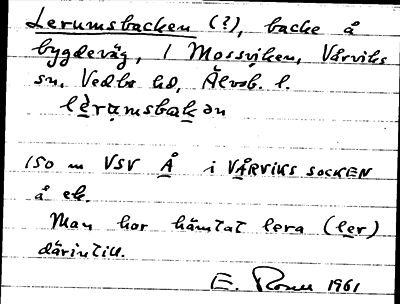 Lerumsbacken (?), backe å
bygdeväg, / Mossviken, Vårviks
sn, Vedbo hd, Älvsb. l.
lèrumsbakən
150 m VSV Å i VÅRVIKS SOCKEN
å ek.
Man har hämtat lera (ler)
därintill.
E. 1961